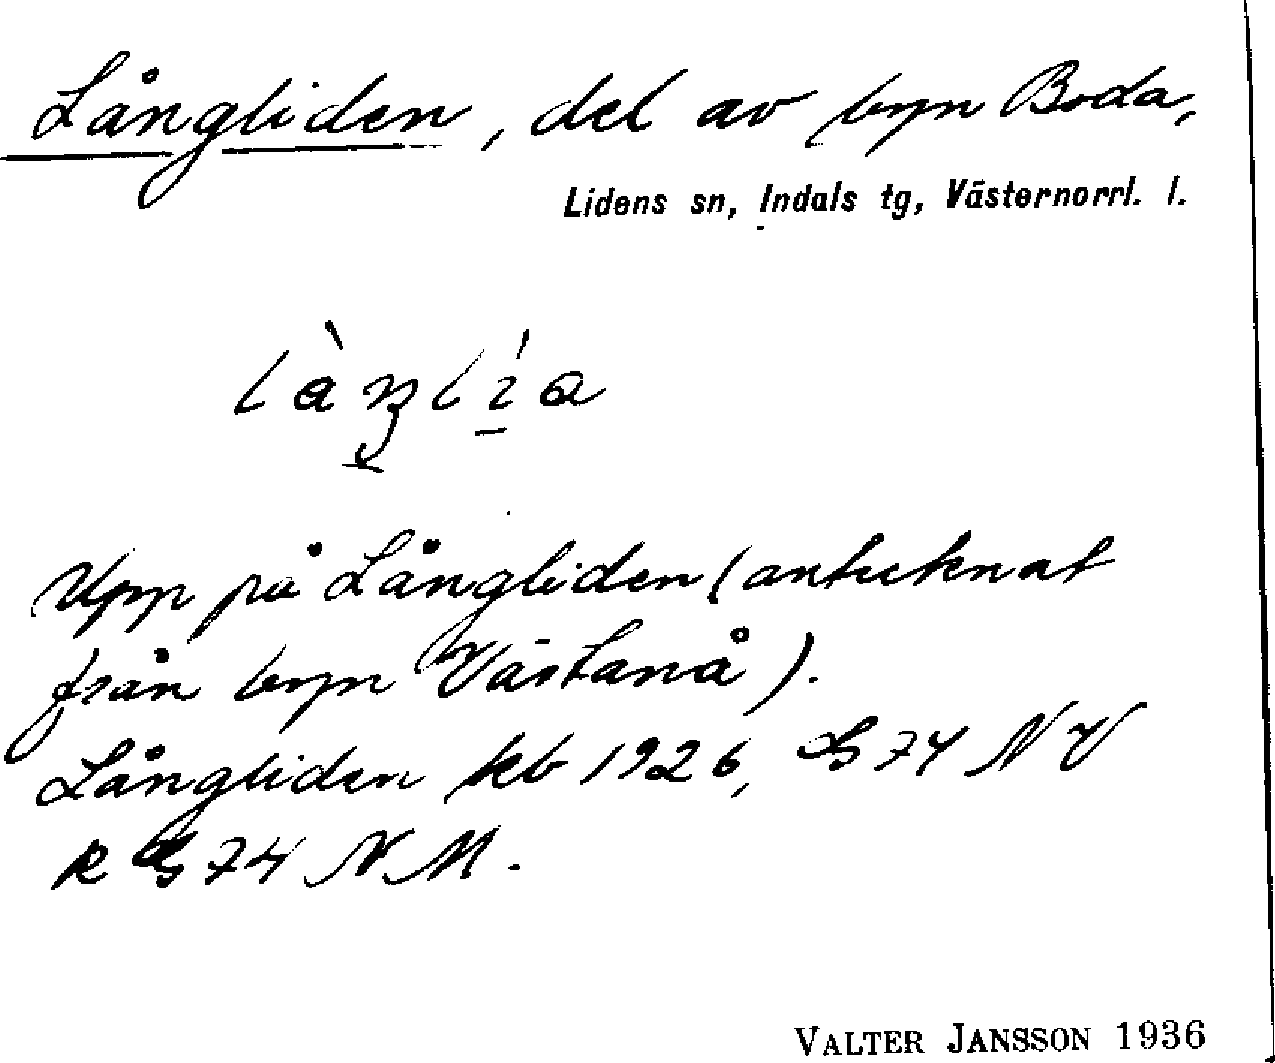 Långliden, del av byn Boda,
Lidens sn, Indals tg, Västernorrl. l.
Upp på Långliden (antecknat
från byn Västanå).
Långliden kb 1926, G 74 NV
R G 74 NM.
VALTER JANSSON 1936